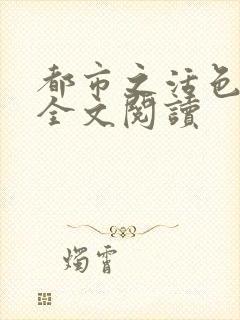 都市之活色
全文閱讀
燭霄